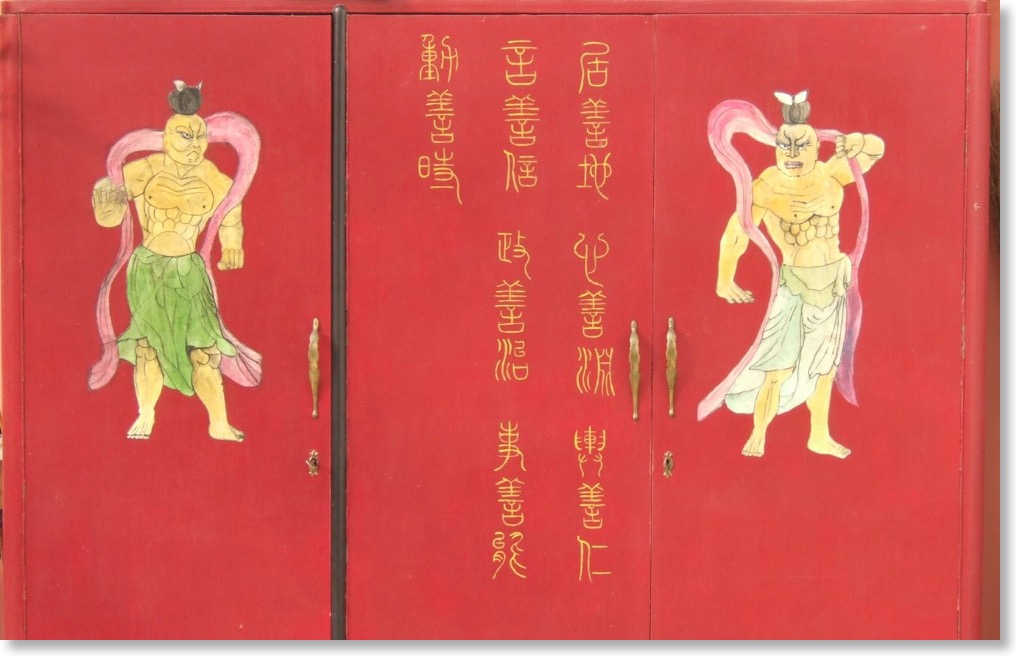 居善地 心善淵 與善仁
言善信 政善治 事善能
動善時